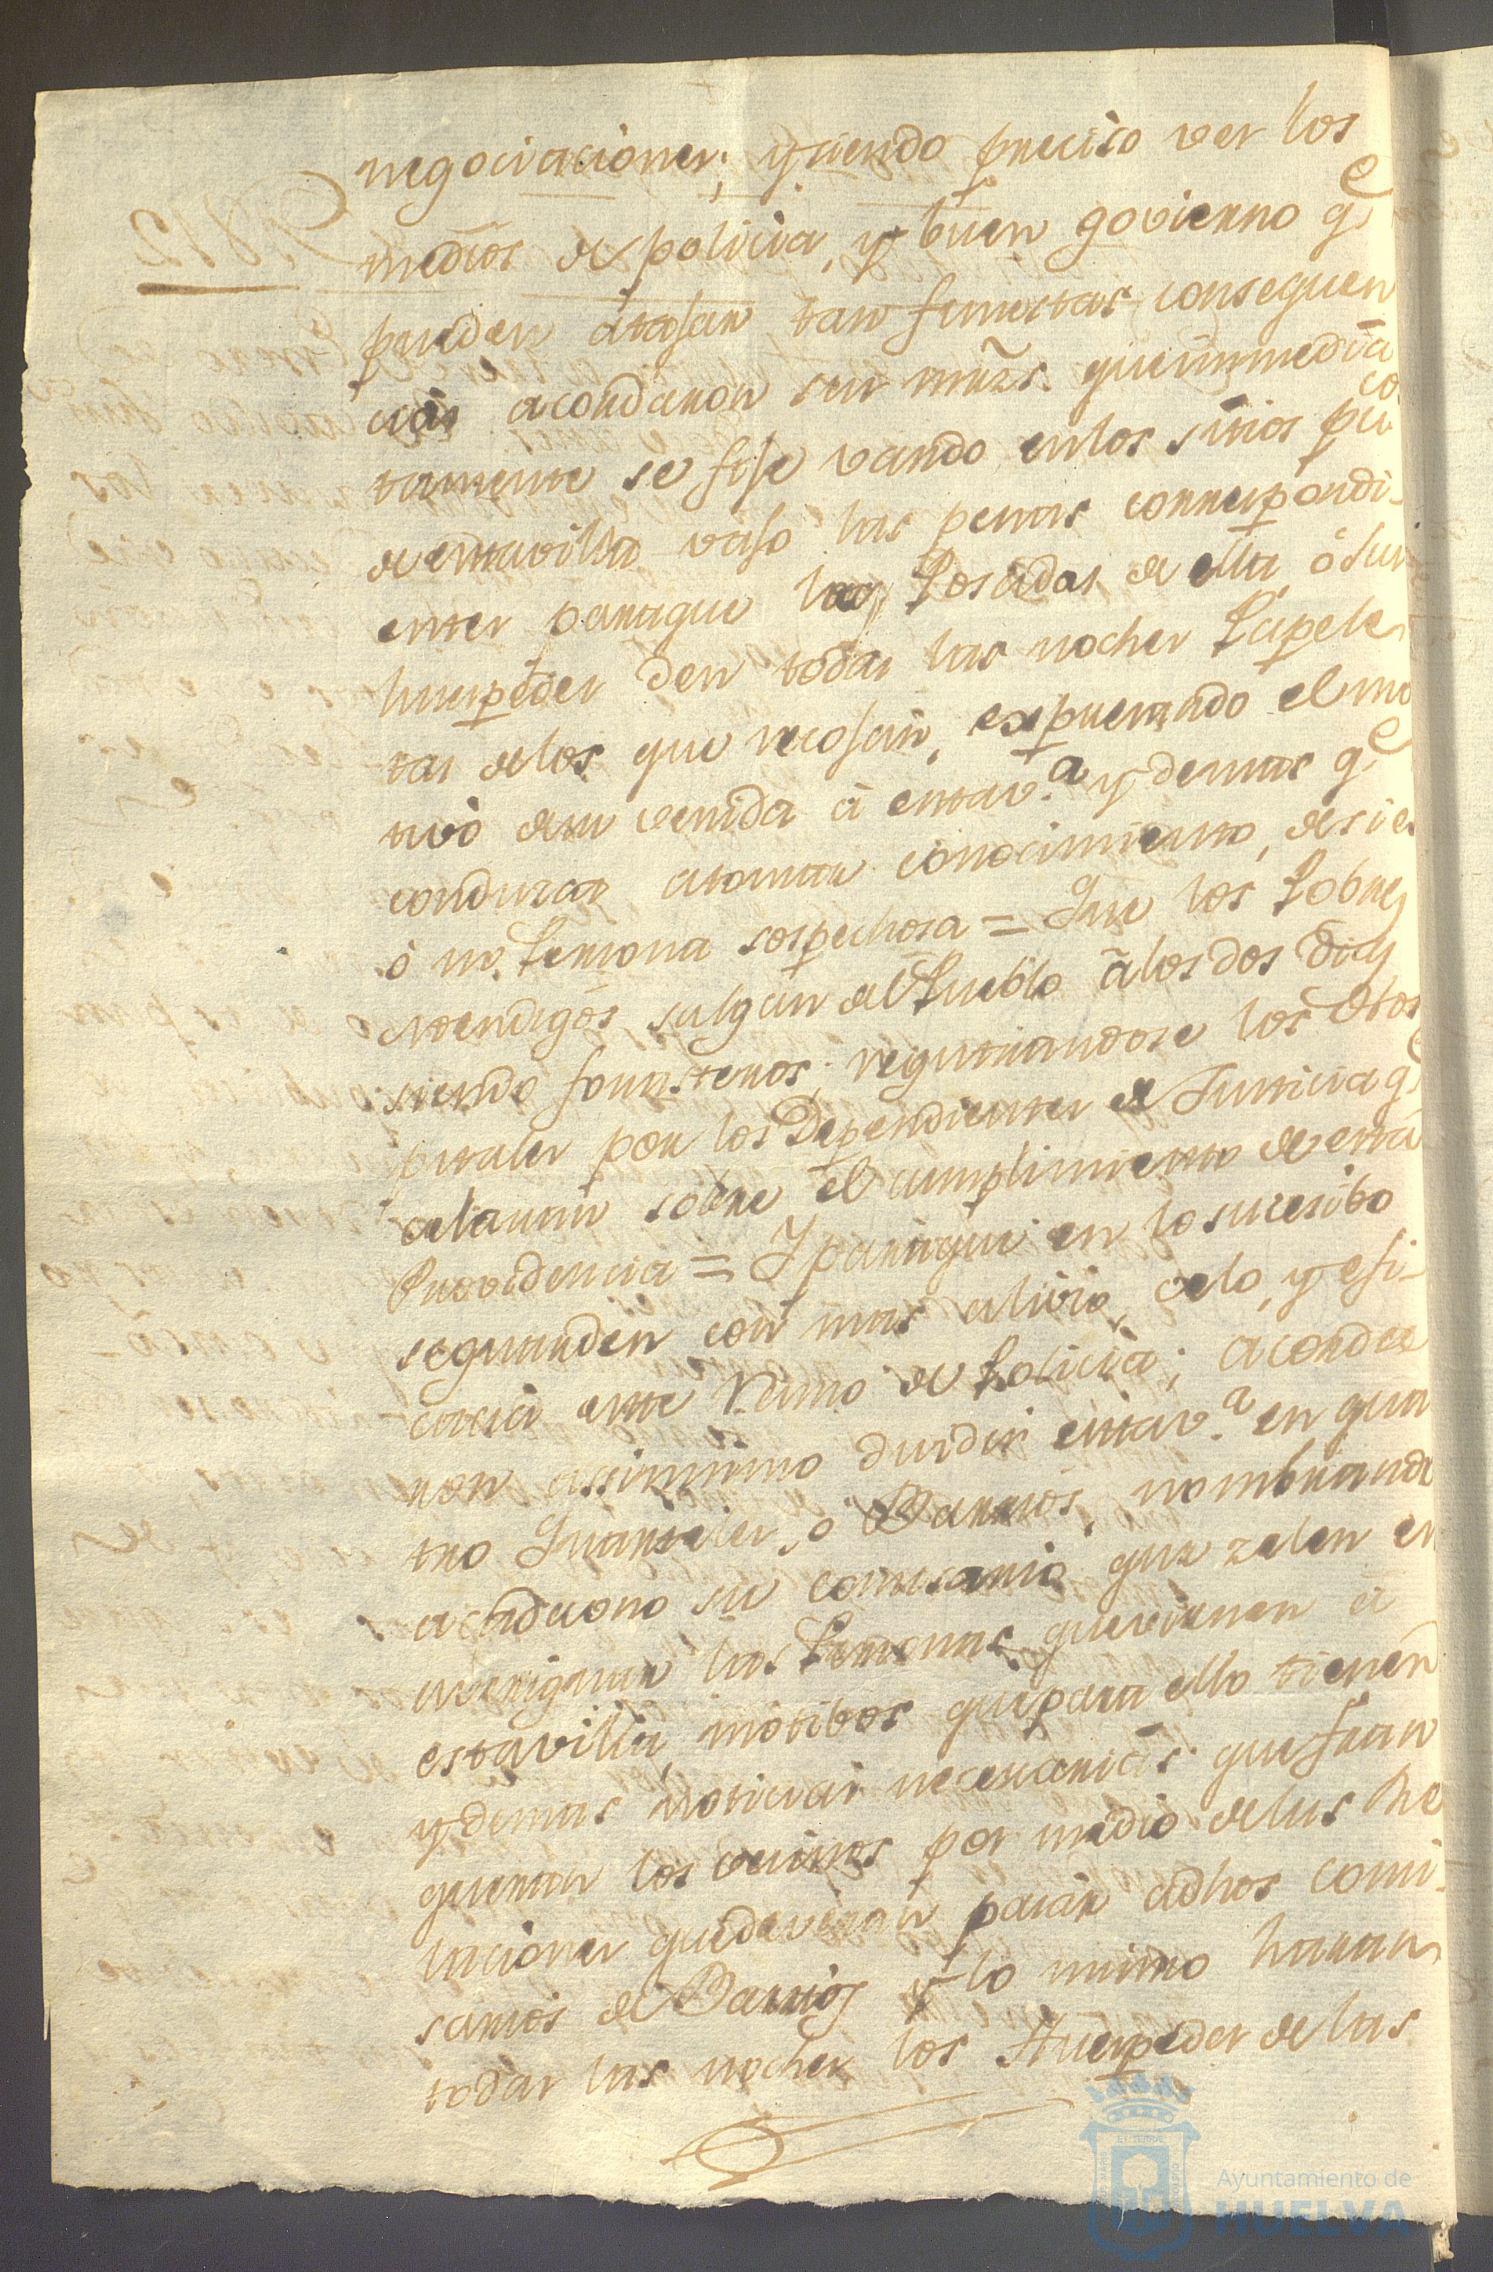 negociaciones; y siendo preciso ver los
medios de policia, y buen govierno qe
pueden atajar tan funestas consequen
cias acordaron sus mrzs. que inmedia
tamente se fije vando en los sitios puco
de esta villa vajo las penas correspondi-
entes para que las Posadas de ella, ó sus
huespedes den todas las noches Papele
tas de los que recojan, expresando el mo
tivo de su venida á esta va. y demas qe
conduzcan a tomar conocimiento, de si es
ó no Persona sospechosa = Que los Pobres
Mendigos salgan del Pueblo á los dos dias
siendo forasteros; registrandose los Hos
pitales por los Dependientes de Justicia qe
celaran sobre el cumplimiento de esta
Providencia = Y para que en lo sucesibo
se guarden con mas alivio, celo, y efi-
cacia este Ramo de Policia; acorda
ron assimismo dividir esta va. en qua
tro Quarteles, o Barrios, nombrando
a cada uno su comisario que zelen en
averiguar las Personas que vienen a
esta villa, motibos que para ello tienen
y demas noticias necesarias que fran
quearan los vecinos por medio de las Re
laciones que deveran pasar a dhos comi-
sarios de Barrios y lo mismo haran
todas las noches los Huespedes de las
Ayuntamiento de
HUELVA